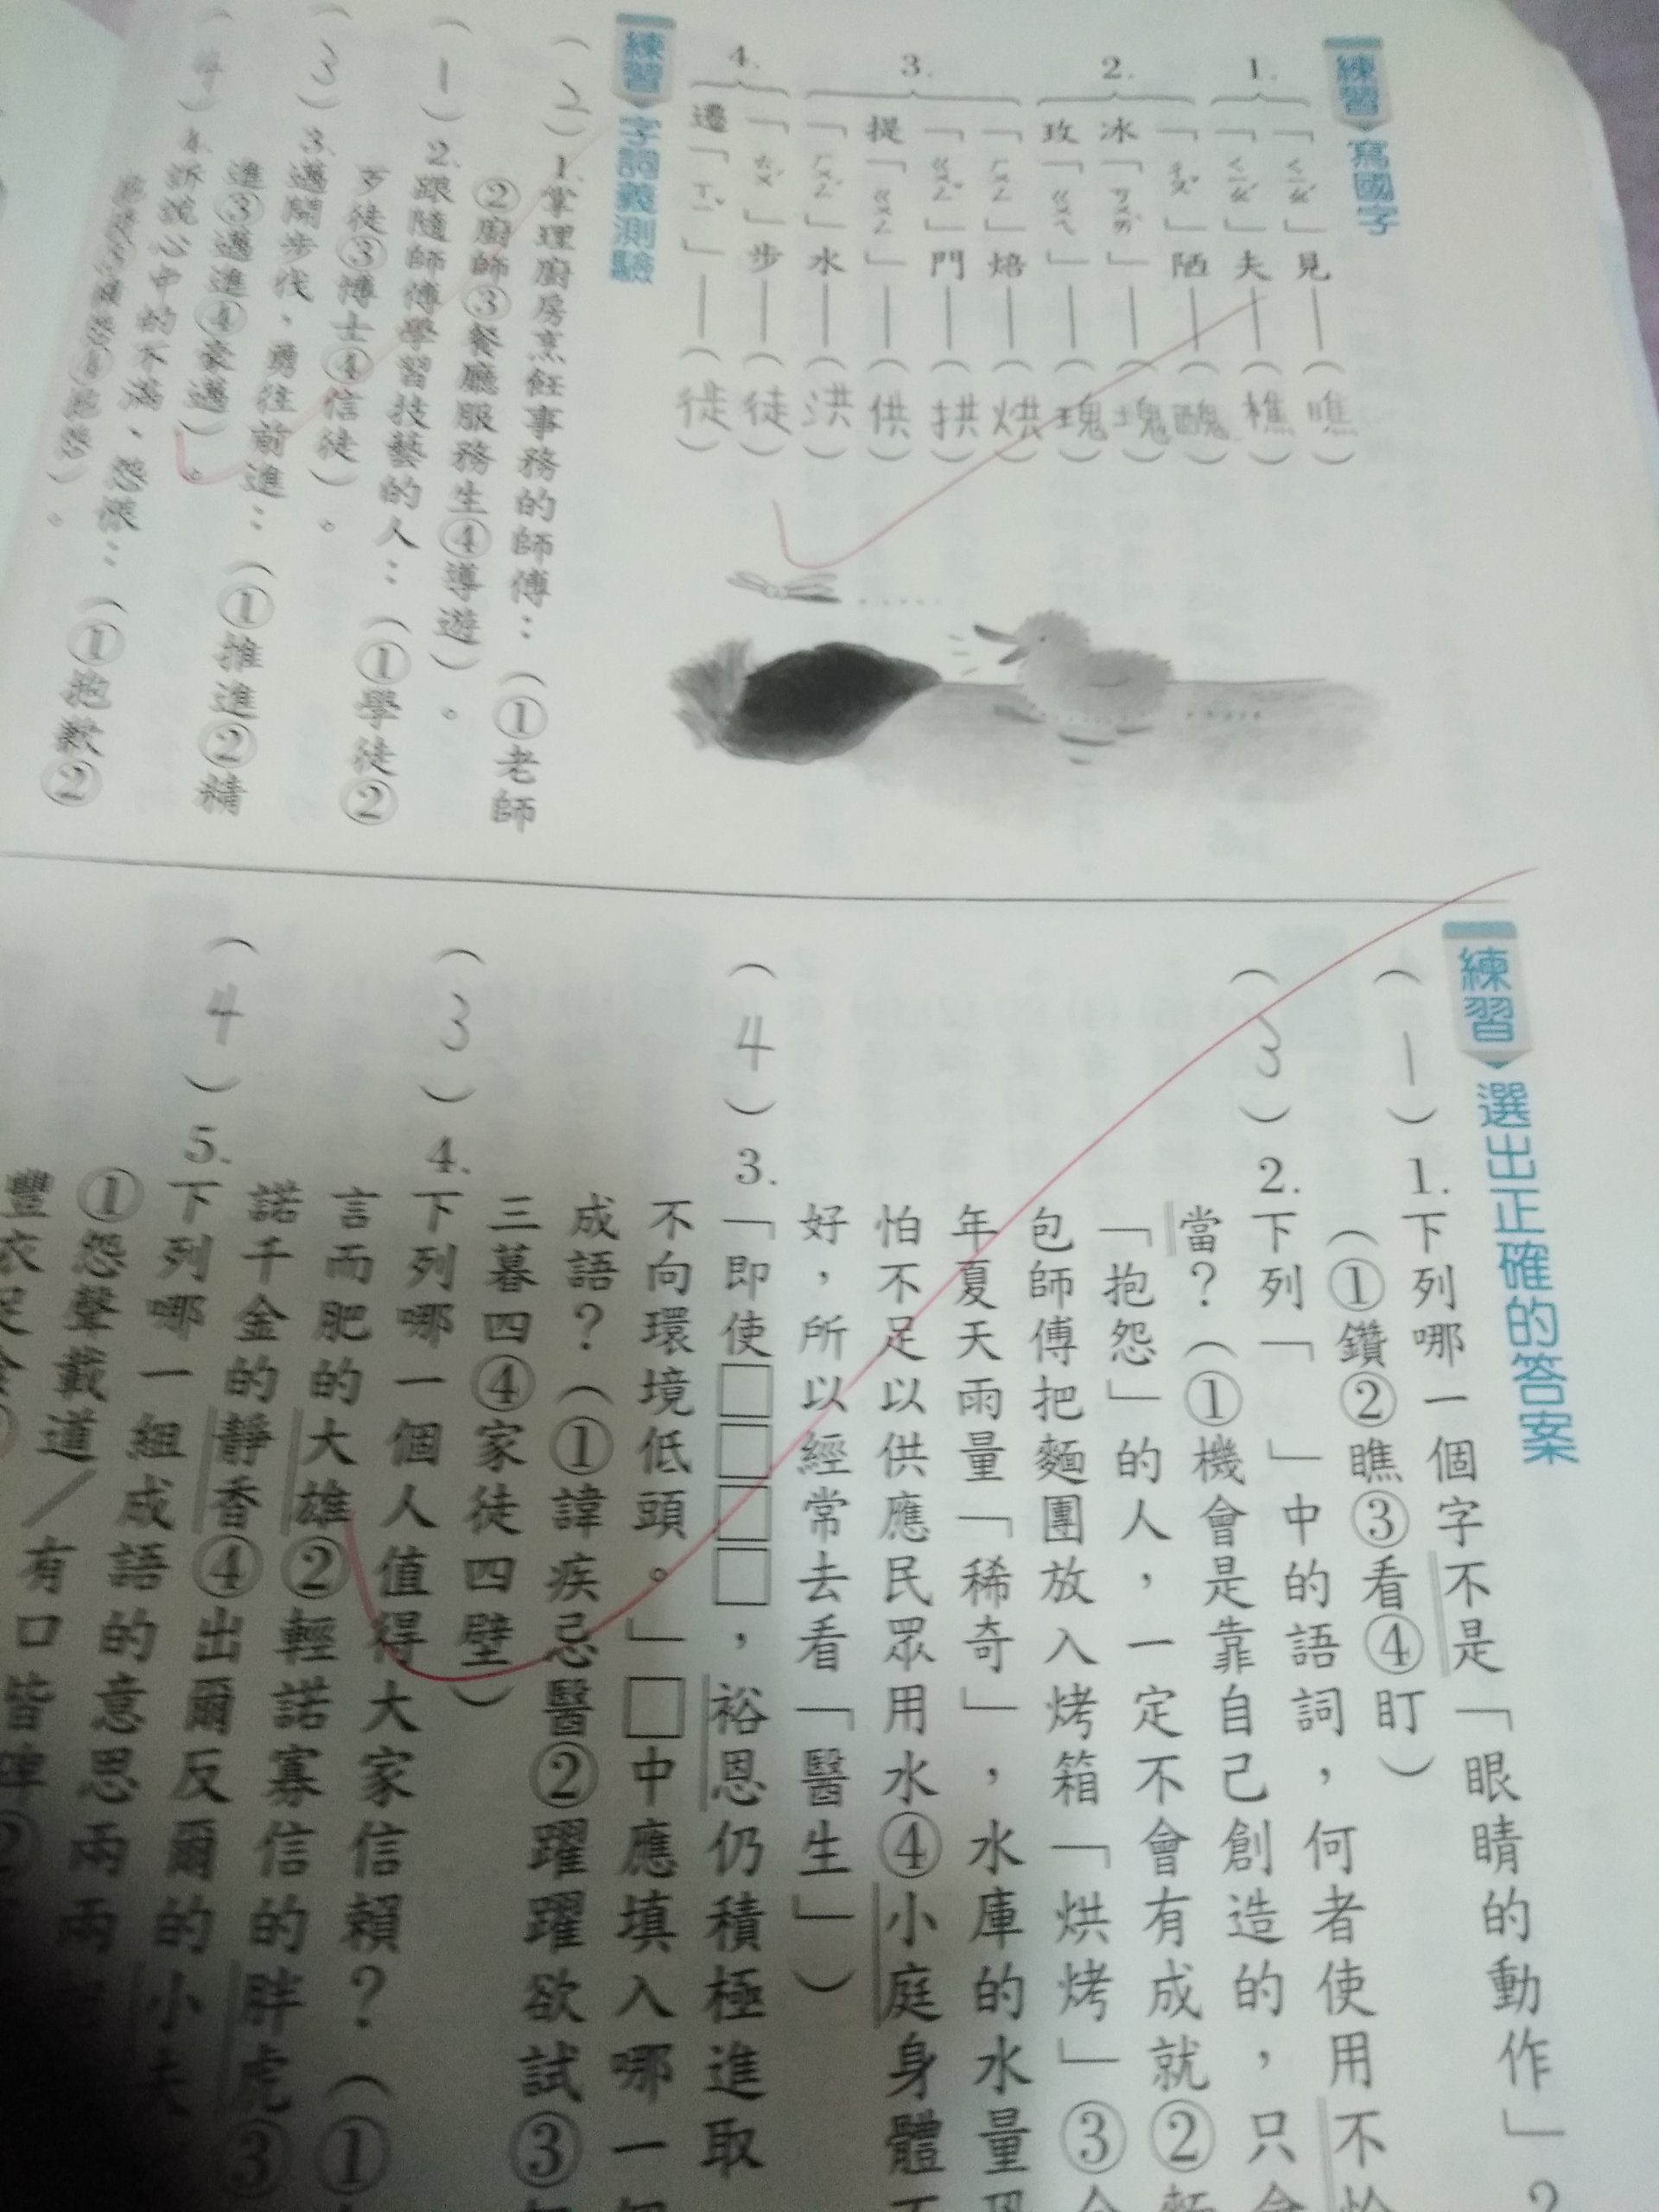 練習 寫國字
1.
「ㄑㄧㄠˊ」見——(瞧)
「ㄑㄧㄠˊ」夫——(樵)
2.
「ㄔㄡˇ」陋——(醜)
冰「ㄎㄨㄞˋ」——(塊)
玫「ㄍㄨㄟ」——(瑰)
3.
「ㄏㄨㄥ」焙——(烘)
「ㄍㄨㄥˇ」門——(拱)
提「ㄍㄨㄥ」——(供)
「ㄏㄨㄥˊ」水——(洪)
4.
「ㄊㄨˊ」步——(徒)
遷「ㄒㄧˇ」——(徙)
練習 字詞義測驗
(2)1.掌理廚房烹飪事務的師傅:(①老師
②廚師③餐廳服務生④導遊)。
(1)2.跟隨師傅學習技藝的人:(①學徒②
歹徒③博士④信徒)。
(3)3.邁開步伐,勇往前進:(①推進②精
進③邁進④豪邁)。
(4)4.訴說心中的不滿、怨恨:(①抱歉②
④抱怨)。
練習 選出正確的答案
(1)1.下列哪一個字不是「眼睛的動作」?
(①鑽②瞧③看④盯)
(3)2.下列「 」中的語詞,何者使用不恰
當?(①機會是靠自己創造的,只會
「抱怨」的人,一定不會有成就②麵
包師傅把麵團放入烤箱「烘烤」③今
年夏天雨量「稀奇」,水庫的水量恐
怕不足以供應民眾用水④小庭身體不
好,所以經常去看「醫生」)
(4)3.「即使□□□□,裕恩仍積極進取
不向環境低頭。」□中應填入哪一個
成語?(①諱疾忌醫②躍躍欲試③朝
三暮四④家徒四壁)
(3)4.下列哪一個人值得大家信賴?(①
言而肥的大雄②輕諾寡信的胖虎③
諾千金的靜香④出爾反爾的小夫
(4)5.下列哪一組成語的意思兩兩
①怨聲載道/有口皆碑②
豐衣足食